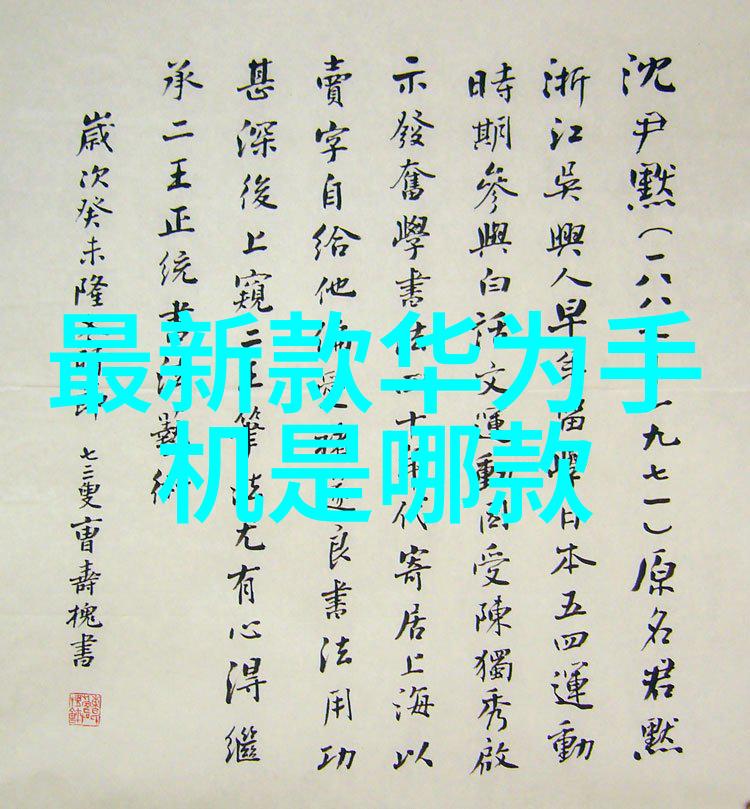 最新款华为手
机是哪款
沈尹默（一八八 一九七一）原名君默
浙江吳興人早年留學日本五四運動
時期參與白話文運動因受陳獨秀啟
示發奮學書法四十年代寄居上海以
賣字自給他 遂良書法用功
甚深後上窺二王筆法尤有心得繼
承二王正統書法
歲次癸未隆 七三叟曹壽槐書